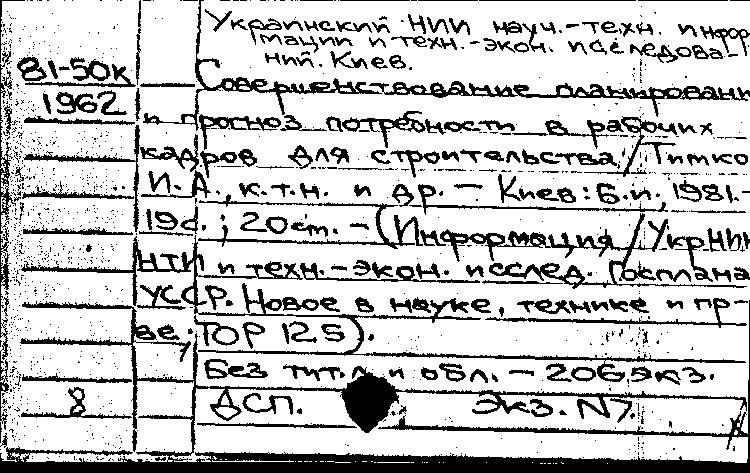 Украинский НИИ науч.-техн. инфор
мации и техн.-экон. исследова-
ний. Киев.
81-50к Совершенствование планирован
1962 и прогноз потребности в рабочих
кадров для строительства/Тимко
И.А., к.т.н. и др. — Киев: Б.и., 1981.-
19с.; 20см. - (Информация/УкрНИИ
НТИ и техн.-экон. исслед. Госплана
УССР. Новое в науке, технике и пр-
ве; ТОР 12.5).
Без тит.л. и обл. — 206экз.
8 ДСП. Экз. N7